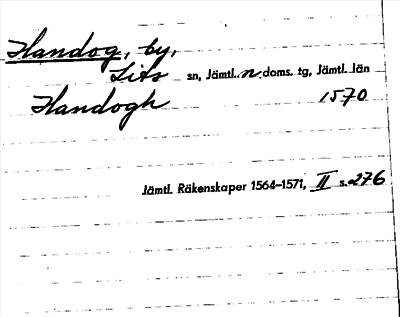 Handog, by,
Lits sn, Jämtl. n. doms. tg, Jämtl. län
Handogh 1570
Jämtl. Räkenskaper 1564–1571, II s. 276